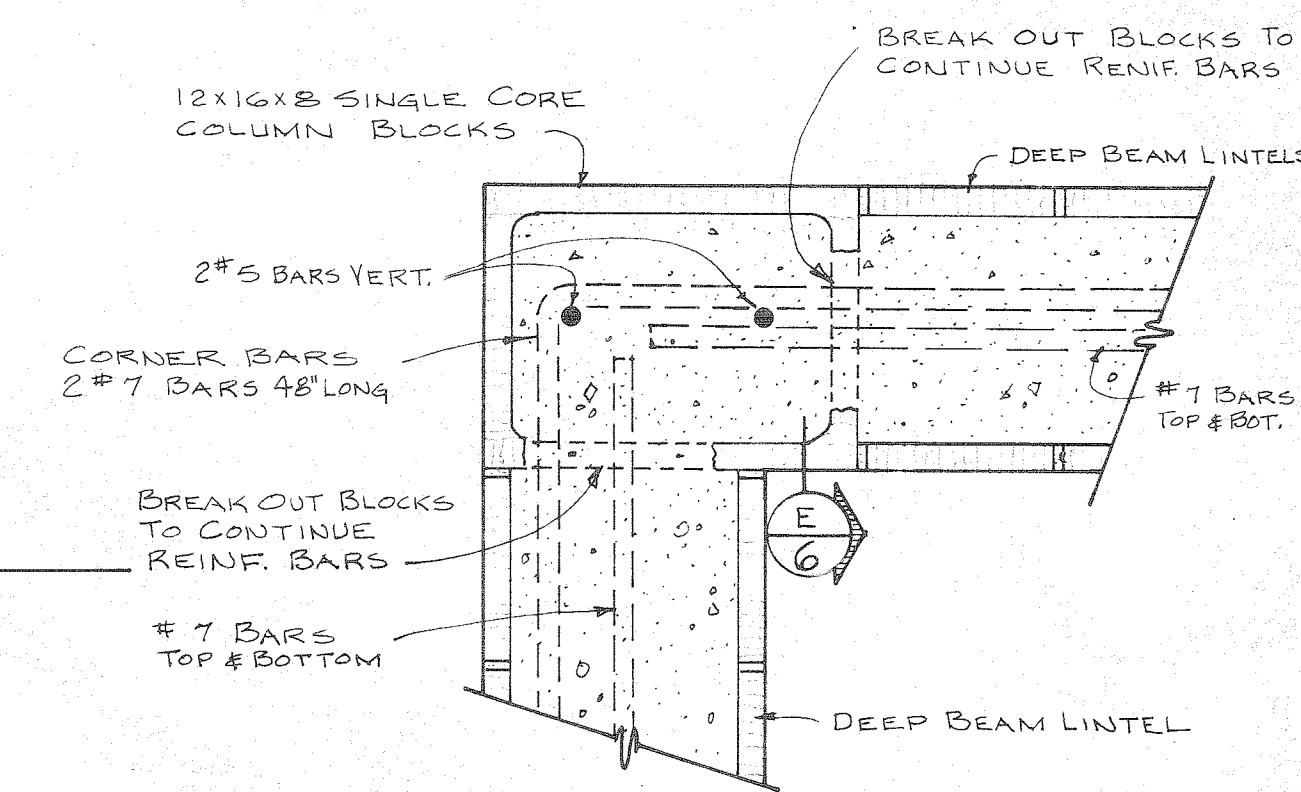 BREAK OUT BLOCKS TO
CONTINUE RENIF. BARS
12x16x8 SINGLE CORE
COLUMN BLOCKS
DEEP BEAM LINTELS
2#5 BARS VERT.
CORNER BARS
2#7 BARS 48" LONG
#7 BARS
TOP & BOT.
BREAK OUT BLOCKS
TO CONTINUE
REINF. BARS
E
6
#7 BARS
TOP & BOTTOM
DEEP BEAM LINTEL